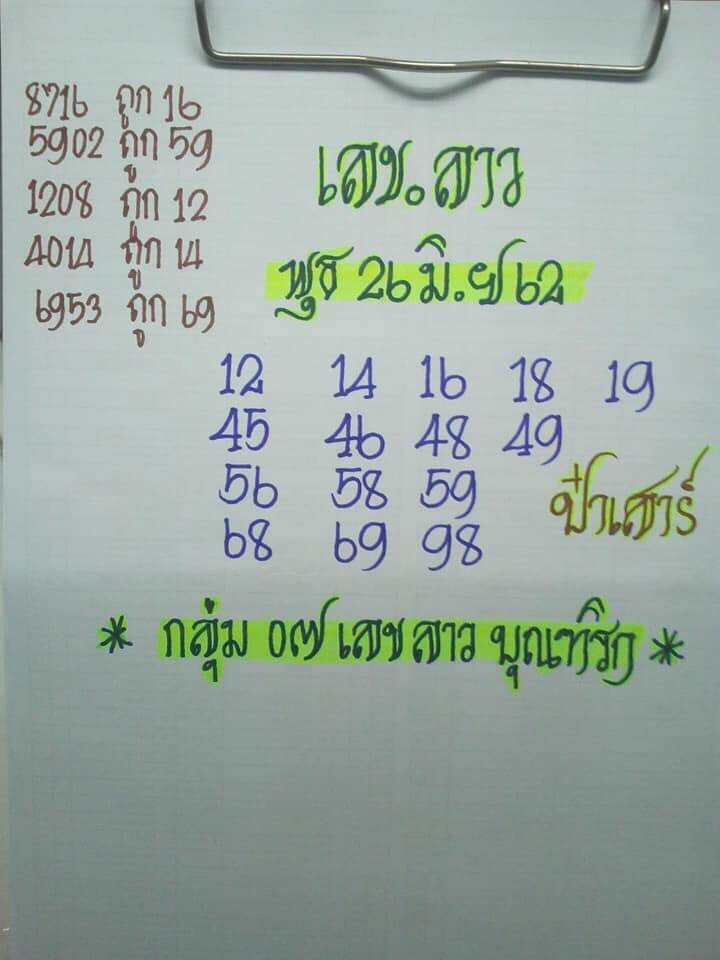 8716 ถูก 16
5902 ถูก 59
1208 ถูก 12
4014 ถูก 14
6953 ถูก 69
เลข.ลาว
พุธ 26 มิ.ย 62
12 14 16 18 19
45 46 48 49
56 58 59
68 69 98
ป๋าเสาร์
* กลุ่ม อภ เลขลาว บุณฑริก *